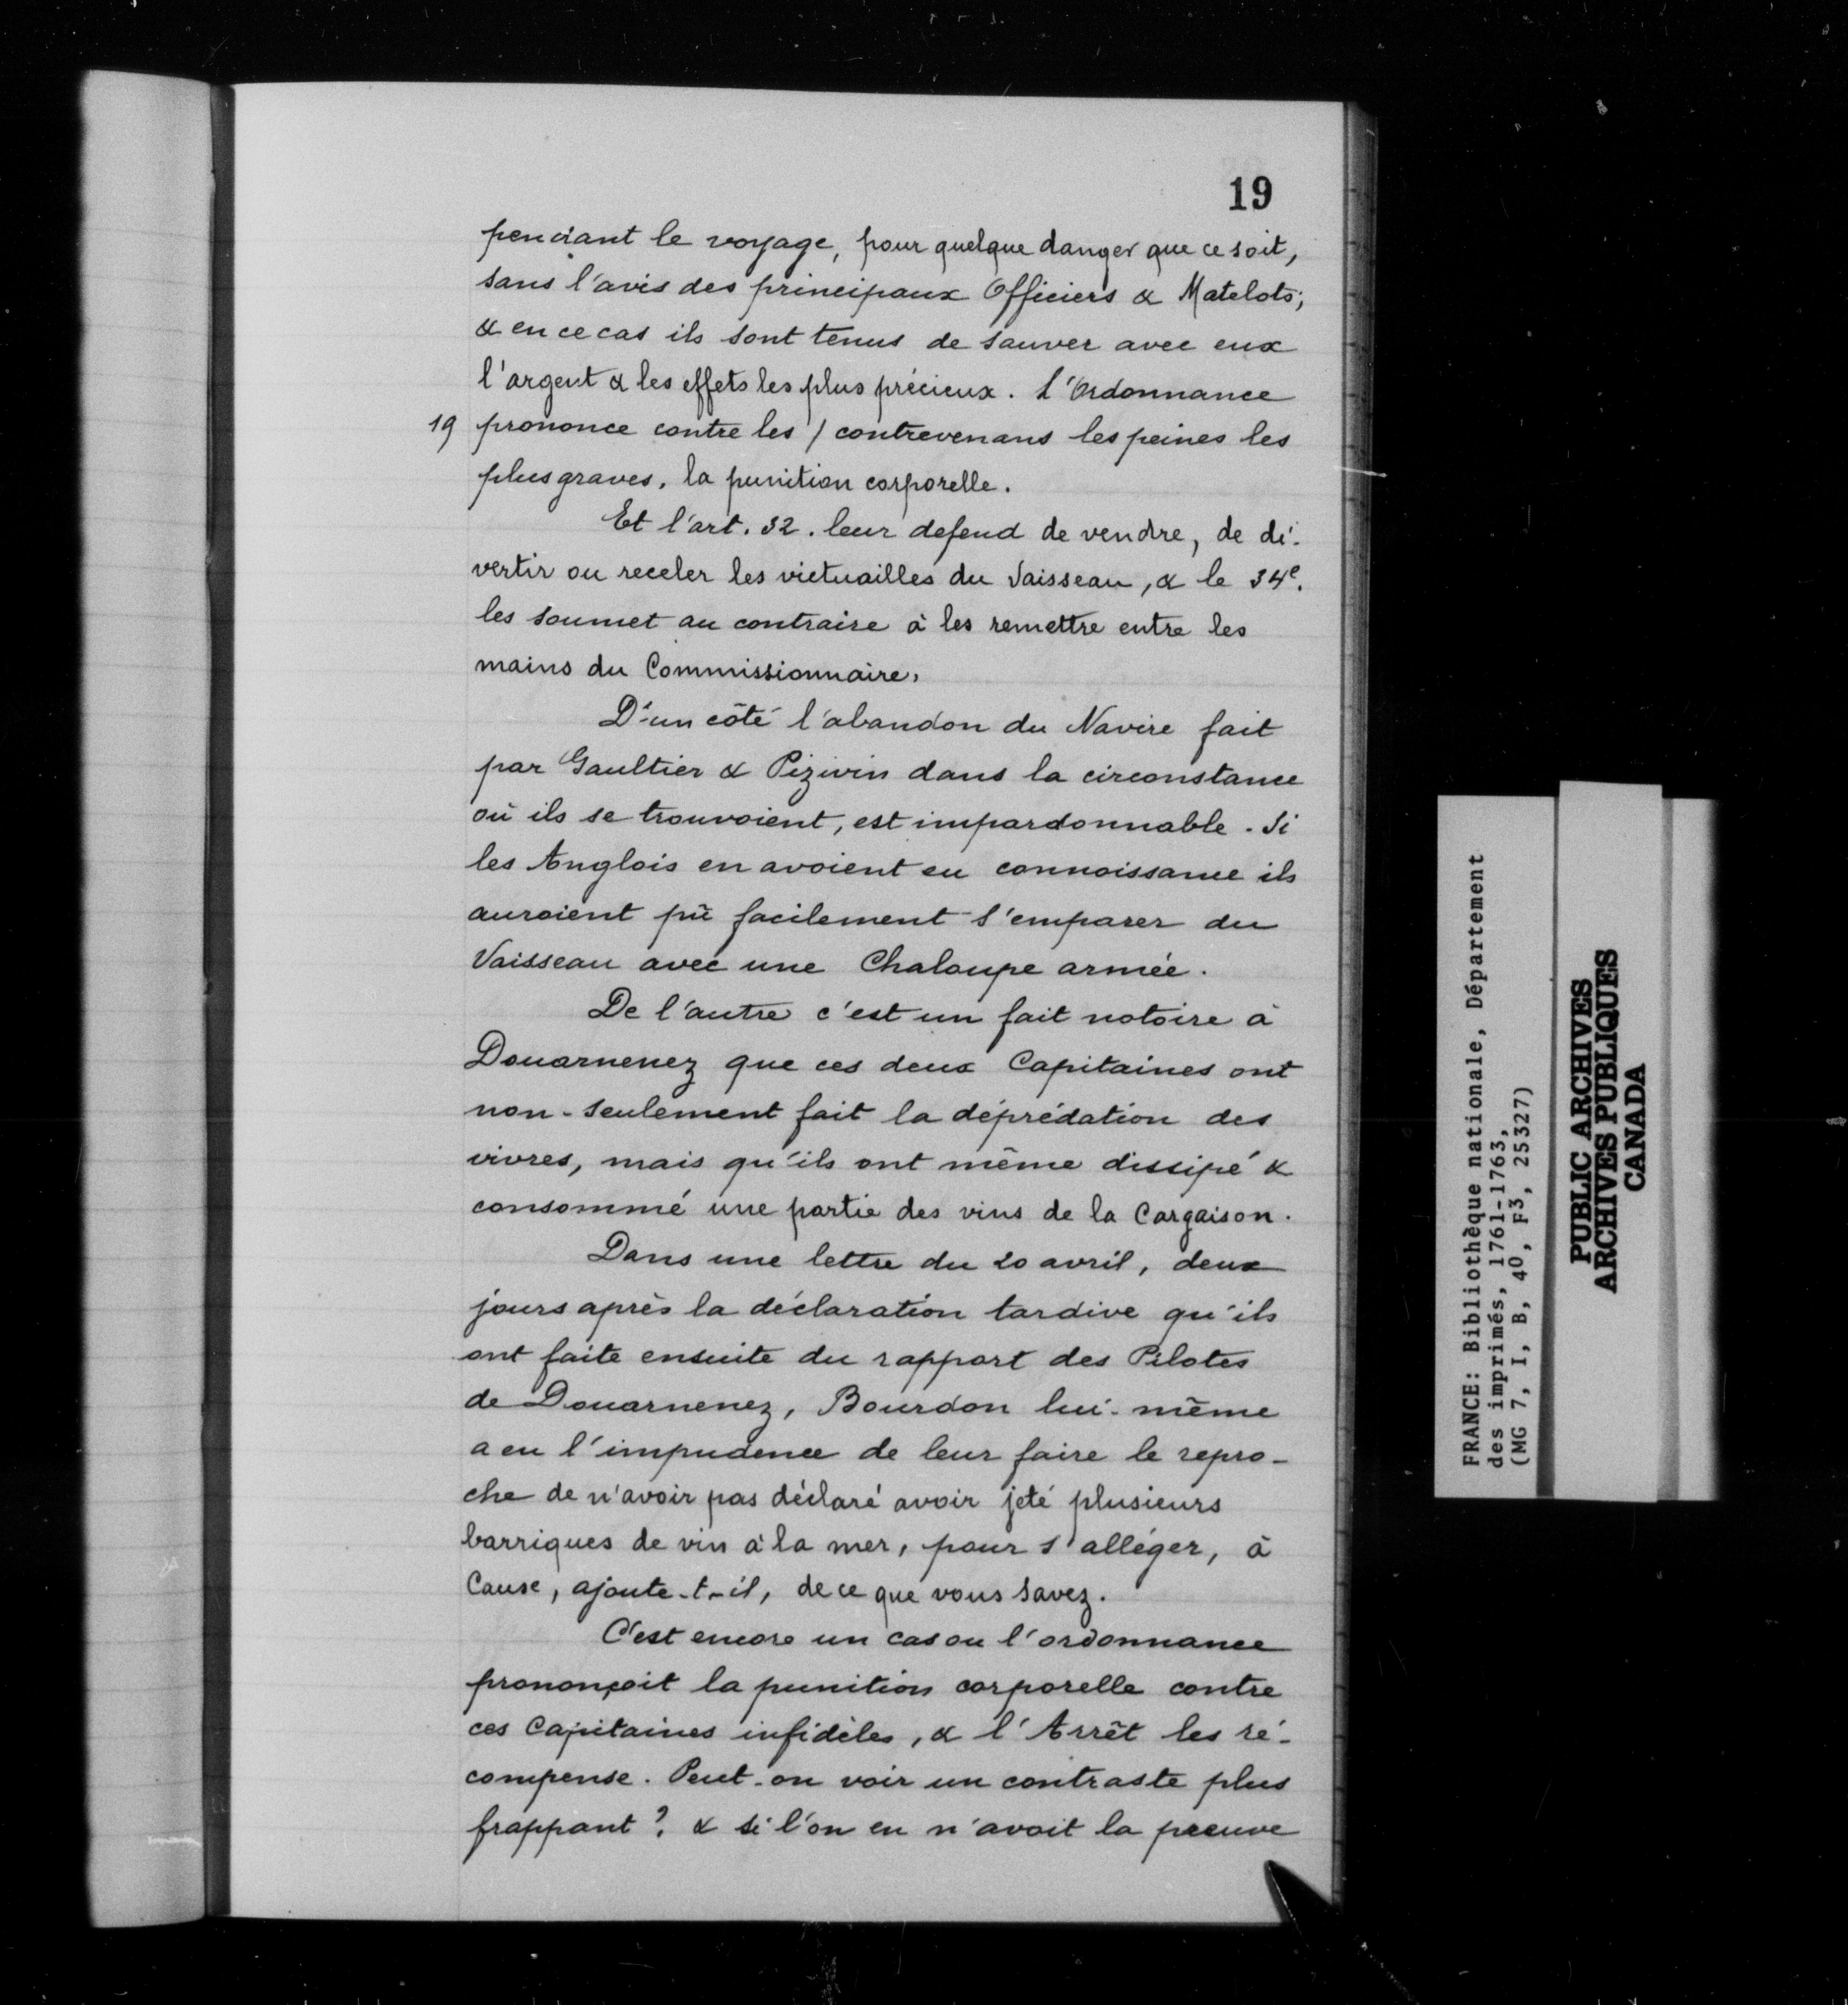 19
pendant le voyage, pour quelque danger que ce soit,
sans l'avis des principaux Officiers & Matelots;
& en ce cas ils sont tenus de sauver avec eux
l'argent & les effets les plus précieux. L'Ordonnance
19 prononce contre les / contrevenans les peines les
plus graves, la punition corporelle.
Et l'art. 32. leur défend de vendre, de di-
vertir ou receler les victuailles du Vaisseau, & le 34e.
les soumet au contraire à les remettre entre les
mains du Commissionnaire.
D'un côté l'abandon du Navire fait
par Gaultier & Pizivin dans la circonstance
où ils se trouvoient, est impardonnable. Si
les Anglois en avoient eu connoissance ils
auroient pû facilement s'emparer du
Vaisseau avec une Chaloupe armée.
De l'autre c'est un fait notoire à
Douarnenez que ces deux Capitaines ont
non-seulement fait la déprédation des
vivres, mais qu'ils ont même dissipé &
consommé une partie des vins de la Cargaison.
Dans une lettre du 20 avril, deux
jours après la déclaration tardive qu'ils
ont faite ensuite du rapport des Pilotes
de Douarnenez, Bourdon lui-même
a eu l'impudence de leur faire le repro-
che de n'avoir pas déclaré avoir jeté plusieurs
barriques de vin à la mer, pour s'alléger, à
Cause, ajoute-t-il, de ce que vous savez.
C'est encore un cas ou l'ordonnance
prononçoit la punition corporelle contre
ces Capitaines infidèles, & l'Arrêt les ré-
compense. Peut-on voir un contraste plus
frappant? & si l'on en n'avoit la preuve
FRANCE: Bibliothèque nationale, Département
des imprimés, 1761-1763,
(MG 7, I, B, 40, F3, 25327)
PUBLIC ARCHIVES
ARCHIVES PUBLIQUES
CANADA